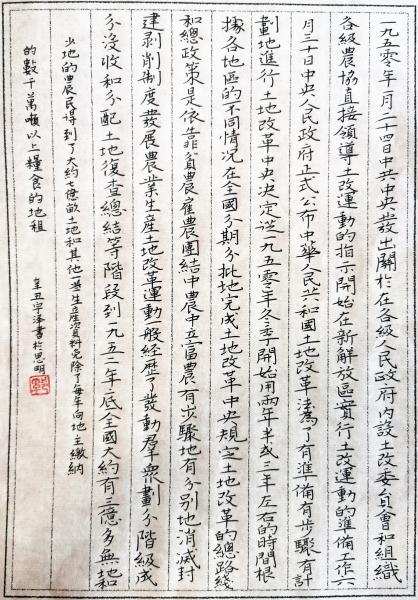 一九五零年一月二十四日中共中央發出關於在各級人民政府内設土改委員會和組織
各級農協直接領導土改運動的指示開始在新解放區實行土改運動的準備工作六
月三十日中央人民政府正式公布中華人民共和國土地改革法為了有準備有步驟有計
劃地進行土地改革中央決定從一九五零年冬季開始用兩年半或三年左右的時間根
據各地區的不同情況在全國分期分批地完成土地改革中央規定土地改革的總路綫
和總政策是依靠貧農雇農團結中農中立富農有步驟地有分別地消滅封
建剥削制度發展農業生産土地改革運動一般經歷了發動羣衆劃分階級成
分沒收和分配土地復查總結等階段到一九五二年底全國大約有三億多無地和
少地的農民得到了大約七億畝土地和其他一些生産資料免除了每年向地主繳納
的數千萬噸以上糧食的地租
辛丑宇澤書於思明